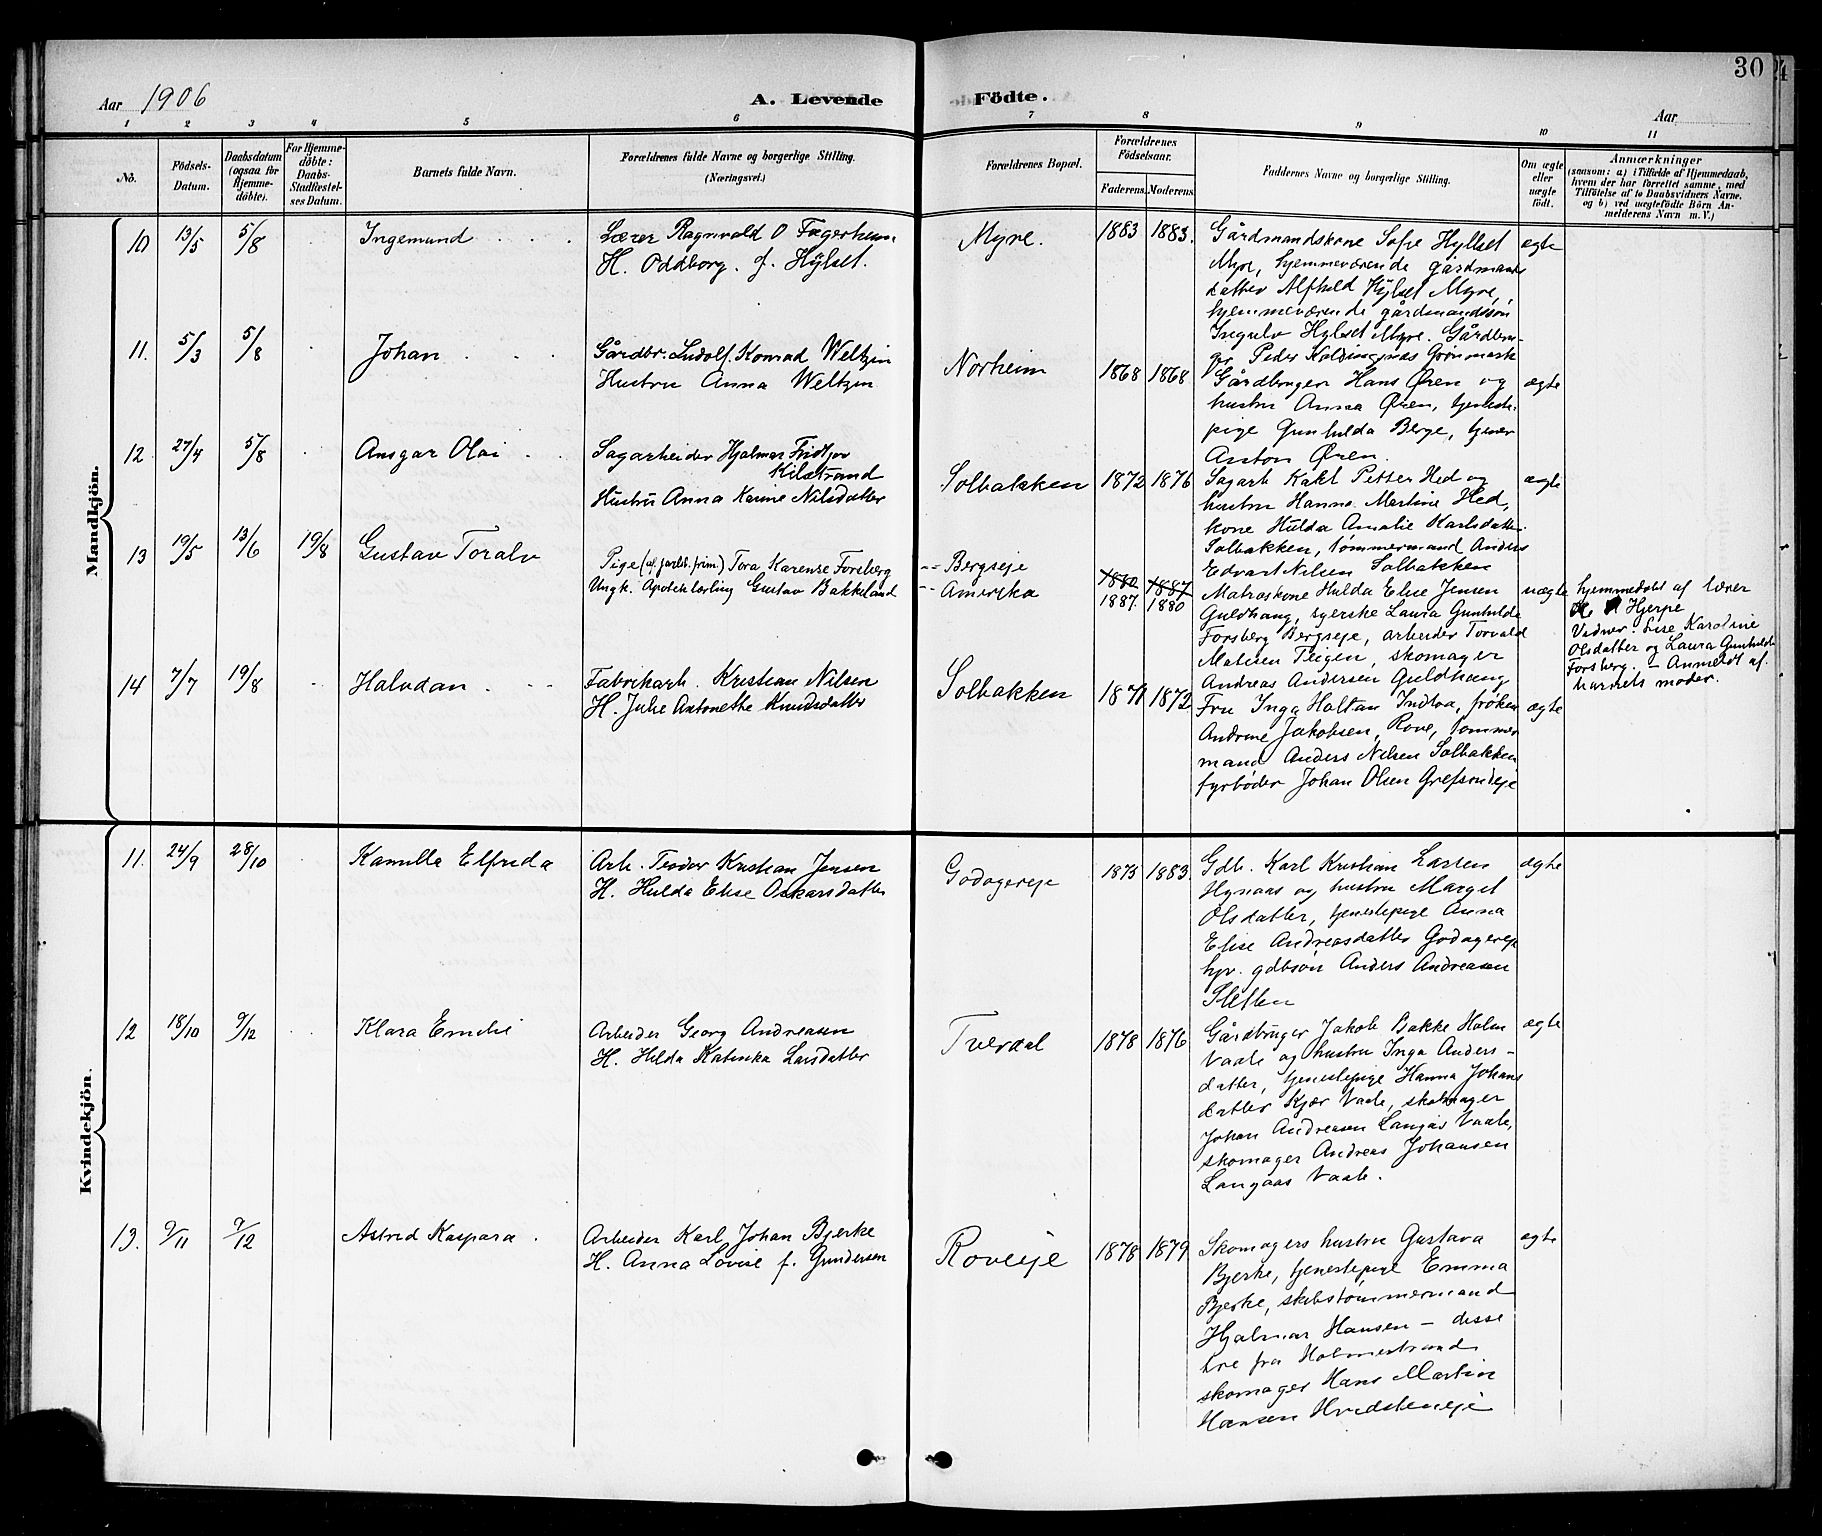 Aar 1906
A. Levende
Födte.
Aar
30
1 2 3 4 5 6 7 8 9 10 11
No.
Födsels-Datum.
Daabsdatum (ogsaa for Hjemme-döbte).
For Hjemme-döbte: Daabs-Stadfæstel-ses Datum.
Barnets fulde Navn.
Forældrenes fulde Navne og borgerlige Stilling.
(Næringsvei.)
Forældrenes Bopæl.
Forældrenes Födselsaar.
Faderens. Moderens.
Faddernes Navne og borgerlige Stilling.
Om ægte eller uægte födt.
Anmærkninger
(saasom: a) i Tilfælde af Hjemmedaab,
hvem der har forrettet samme, med
Tilföielse af to Daabsvidners Navne,
og b) ved uægtefödte Börn An-
melderens Navn m. V.)
Mandkjön.
10 13/5 5/8 Ingemund
Lærer Ragnvald O Fagerheim
H. Oddborg. f. Hylset.
Myre. 1883 1883.
Gårdmandskone Sofie Hyllset
Myre, hjemmeværende gårdmands
datter Alfhild Hylset Myre,
hjemmeværende gårdmandssøn
Ingulv Hylset Myre. Gårdbru-
ger Peder Grønmark
ægte
11. 5/3 5/8 Johan
Gårdbr. Ludolf Konrad Weltzin
Hustru Anna Weltzin
Norheim 1868 1868
Gårdbruger Hans Øren og
hustru Anna Øren, tjeneste-
pige Gunhilda Berge, tjener
Anton Øren.
ægte
12 27/4 5/8 Ansgar Olai
Sagarbeider Hjalmar Fridtjov
Kilstrand
Hustru Anna Karine Nilsdatter
Solbakken 1872 1876
Sagarb Karl Petter Hed og
hustru Hanna Martine Hed,
kone Hulda Amalie Karlsdatter
Solbakken, tømmermand Anders
Edvart Nilsen Solbakken
ægte
13 19/5 13/6 19/8 Gustav Toralv
Pige Tora Karense Forsberg
Ungk. Apotheklærling Gustav Bakkeland
Bergseje
Amerika
1880 1887
1887. 1880
Matroskone Hulda Elise Jensen
Guldhaug, syerske Laura Gunhilde
Forsberg Bergseje, arbeider Torvald
Matisen Teigen, skomager
Andreas Andersen Guldhaug
uægte
hjemmedøbt af lærer
Hjerpe
Vidner: Lise Karoline
Olsdatter og Laura Gunhilde
Forsberg. – Anmeldt af
barnets moder.
14 7/7 19/8 Halvdan
Fabrikarb. Kristian Nilsen
H. Julie Antonette Knudsdatter
Solbakken 1871 1872
Fru Inga Holtan Indtoa, frøken
Andrine Jakobsen, Rove, tømmer
mand Anders Nilsen Solbakken,
fyrbøder Johan Olsen Grefsrudeje
ægte
Kvindekjön.
11. 24/9 28/10 Kamilla Elfrida
Arb. Teodor Kristian Jensen
H. Hulda Elise Oskarsdatter
Godagereje 1873 1883.
Gdb. Karl Kristian Larsen
Hynaas og hustru Margit
Olsdatter, tjenestepige Anna
Elise Andreasdatter Godagereje
hjv. gdbsøn Anders Andreasen
Sletten
ægte
12 18/10 9/12 Klara Emilie
Arbeider Georg Andreasen
H. Hilda Katinka Larsdatter
Tverdal 1878 1876
Gårdbruger Jakob Bakke Holm
Vaale og hustru Inga Anders-
datter, tjenestepige Hanna Johans
datter Kjær Vaale, skomager
Johan Andreasen Langås Vaale,
skomager Andreas Johansen
Langaas Vaale.
ægte
13. 9/11 9/12 Astrid Kaspara.
Arbeider Karl Johan Bjerke
H. Anna Lovise f. Gundersen
Roveje 1878 1879
Skomagers hustru Gustava
Bjerke, tjenestepige Emma
Bjerke, skibstømmermand
Hjalmar Hansen – disse
tre fra Holmestrand
skomager Hans Martin
Hansen Hvidsteneje
ægte